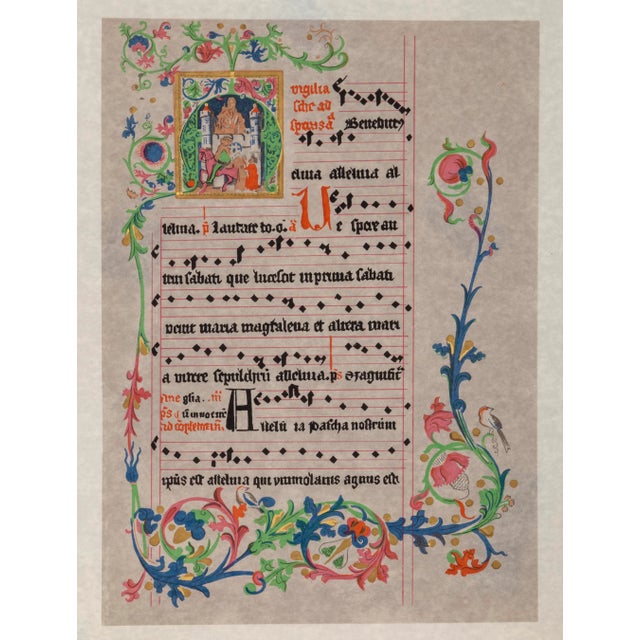 vrgilia
sche ad
spons a
Benedict9
eluia alleluia al
leluia. p laudate do. o. a Ve spere au
tem sabati que lucesot in prima sabati
venit maria magdalena et altera mari
a videre sepulchru alleluia. ps
glia. iii
ps
Alleluia Pascha nostrum
ipus est alleluia qui ymmolatus agnus est